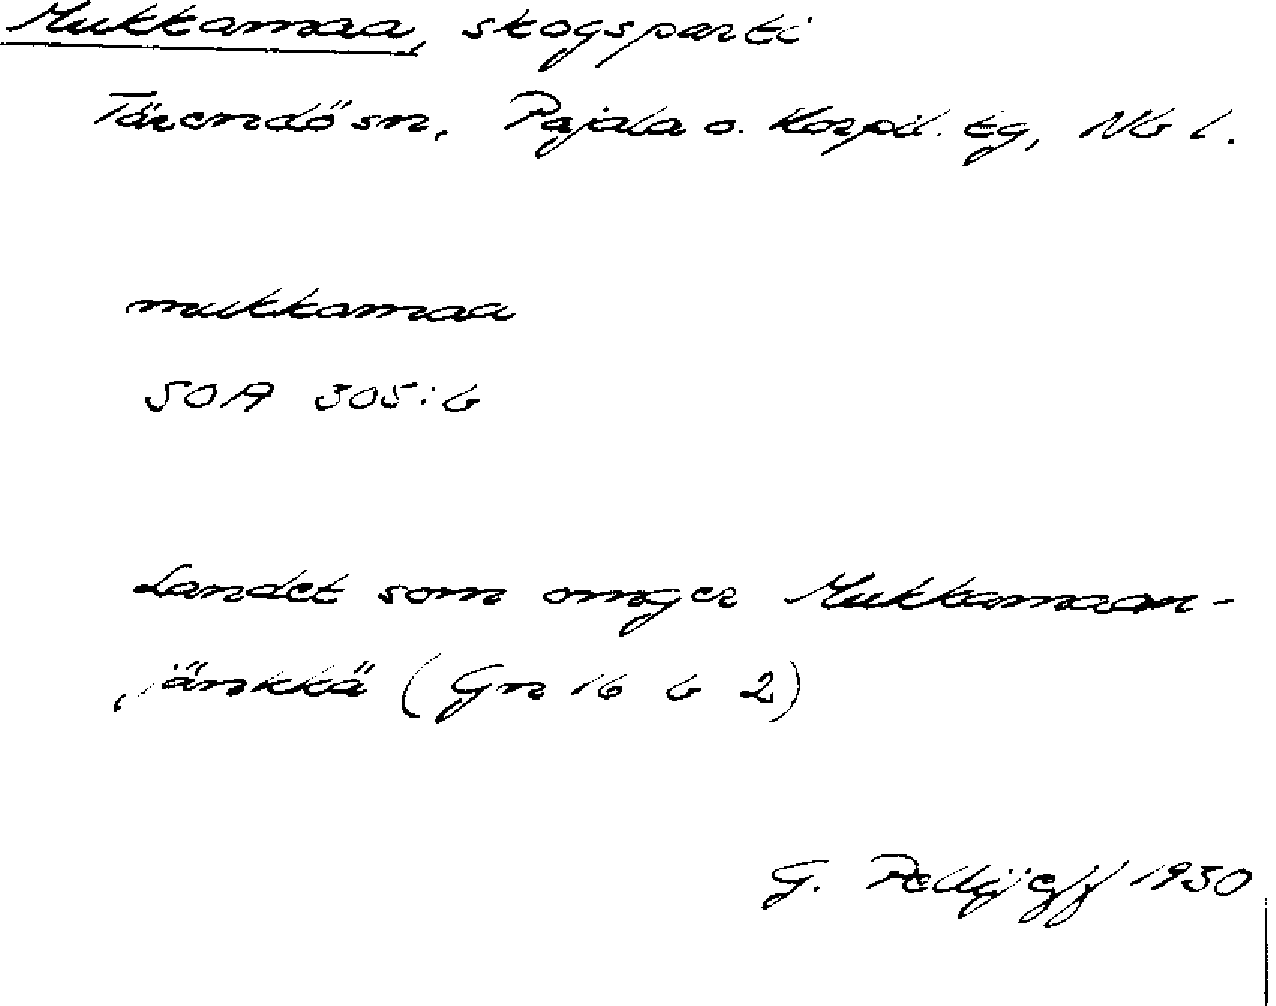 Mukkamaa, skogsparti
Tärendö sn, Pajala o. Korpil. tg, Nb l.
mukkamaa
SOA 305:6
Landet som omger Mukkamaan-
jänkkä (Gn 16 b 2)
G. Pellijeff 1950